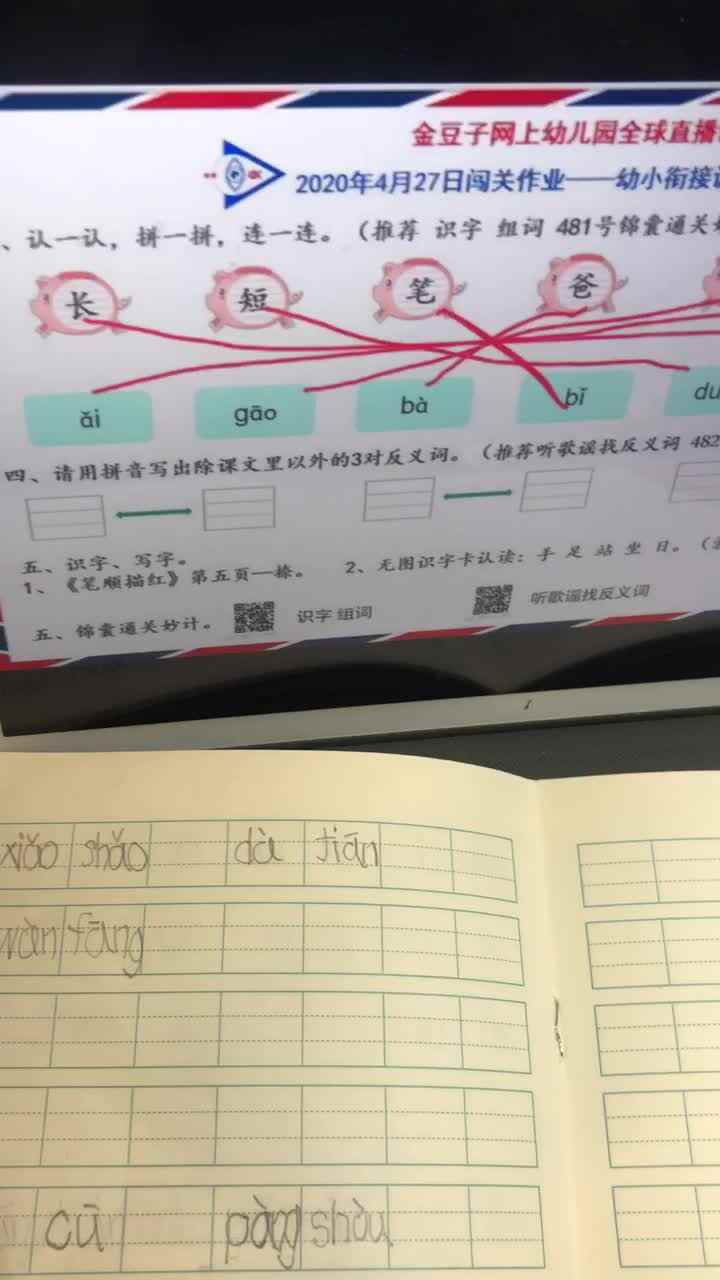 金豆子网上幼儿园全球直播
2020年4月27日闯关作业——幼小衔接
、认一认，拼一拼，连一连。（推荐 识字 组词 481号锦囊通关
长 短 笔 爸
ǎi gāo bà bǐ du
四、请用拼音写出除课文里以外的3对反义词。（推荐听歌谣找反义词 482
五、识字、写字。
1、《笔顺描红》第五页—捺。 2、无图识字卡认读：手 足 站 坐 日。（
五、锦囊通关妙计。 识字 组词 听歌谣找反义词
xiǎo shǎo dà tiān
fāng
cū pàng shòu